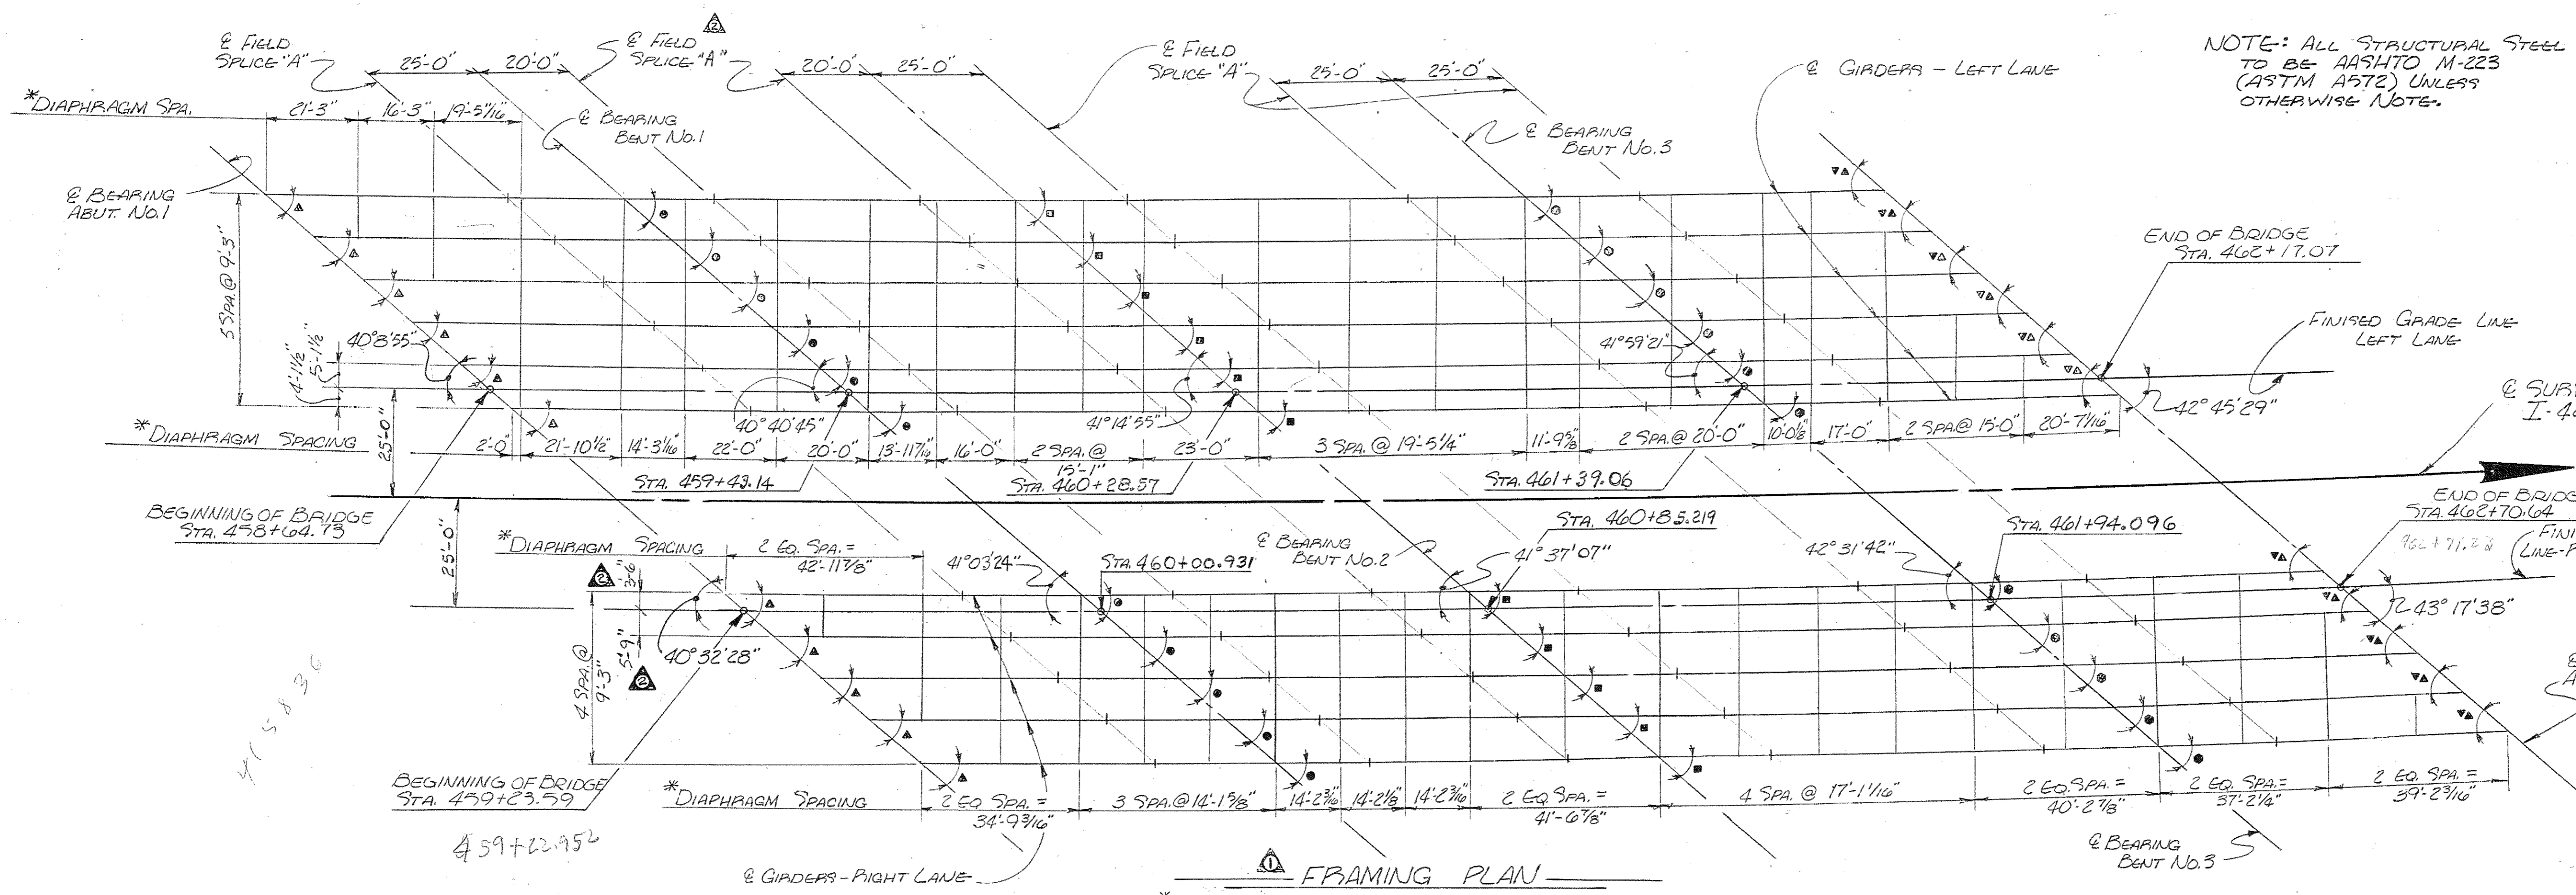 ℄ FIELD
SPLICE "A"
25'-0"
20'-0"
℄ FIELD
SPLICE "A"
2
20'-0"
25'-0"
℄ FIELD
SPLICE "A"
25'-0"
25'-0"
℄ GIRDERS - LEFT LANE
NOTE: ALL STRUCTURAL STEEL
TO BE AASHTO M-223
(ASTM A572) UNLESS
OTHERWISE NOTE.
*DIAPHRAGM SPA.
21'-3"
16'-3"
19'-5 1/16"
℄ BEARING
BENT NO.1
℄ BEARING
BENT NO.3
℄ BEARING
ABUT. NO.1
END OF BRIDGE
STA. 462+17.07
5 SPA. @ 9'-3"
FINISED GRADE LINE
LEFT LANE
4'-1 1/2"
5'-1 1/2"
40°8'55"
40°40'45"
41°14'55"
41°59'21"
42°45'29"
25'-0"
*DIAPHRAGM SPACING
2'-0"
21'-10 1/2"
14'-3 1/16"
22'-0"
20'-0"
13'-11 7/16"
16'-0"
2 SPA. @
15'-1"
23'-0"
3 SPA. @ 19'-5 1/4"
11'-9 5/8"
2 SPA. @ 20'-0"
10'-0 1/2"
17'-0"
2 SPA @ 15'-0"
20'-7 1/16"
STA. 459+43.14
STA. 460+28.57
STA. 461+39.06
BEGINNING OF BRIDGE
STA. 458+64.73
25'-0"
*DIAPHRAGM SPACING
2 EQ. SPA. =
42'-11 7/8"
41°03'24"
STA. 460+00.931
℄ BEARING
BENT NO.2
STA. 460+85.219
41°37'07"
42°31'42"
STA. 461+94.096
END OF BRIDG
STA. 462+70.64
LINE-
2
3'-6"
4 SPA. @
9'-3"
5'-9"
2
40°32'28"
43°17'38"
BEGINNING OF BRIDGE
STA. 459+23.59
*DIAPHRAGM SPACING
2 EQ SPA. =
34'-9 3/16"
3 SPA. @ 14'-1 5/8"
14'-2 3/16"
14'-2 1/8"
14'-2 3/16"
2 EQ. SPA. =
41'-6 7/8"
4 SPA. @ 17'-1 1/16"
2 EQ. SPA. =
40'-2 7/8"
2 EQ. SPA. =
37'-2 1/4"
2 EQ. SPA. =
39'-2 3/16"
℄ GIRDERS - RIGHT LANE
1
FRAMING PLAN
℄ BEARING
BENT NO.3